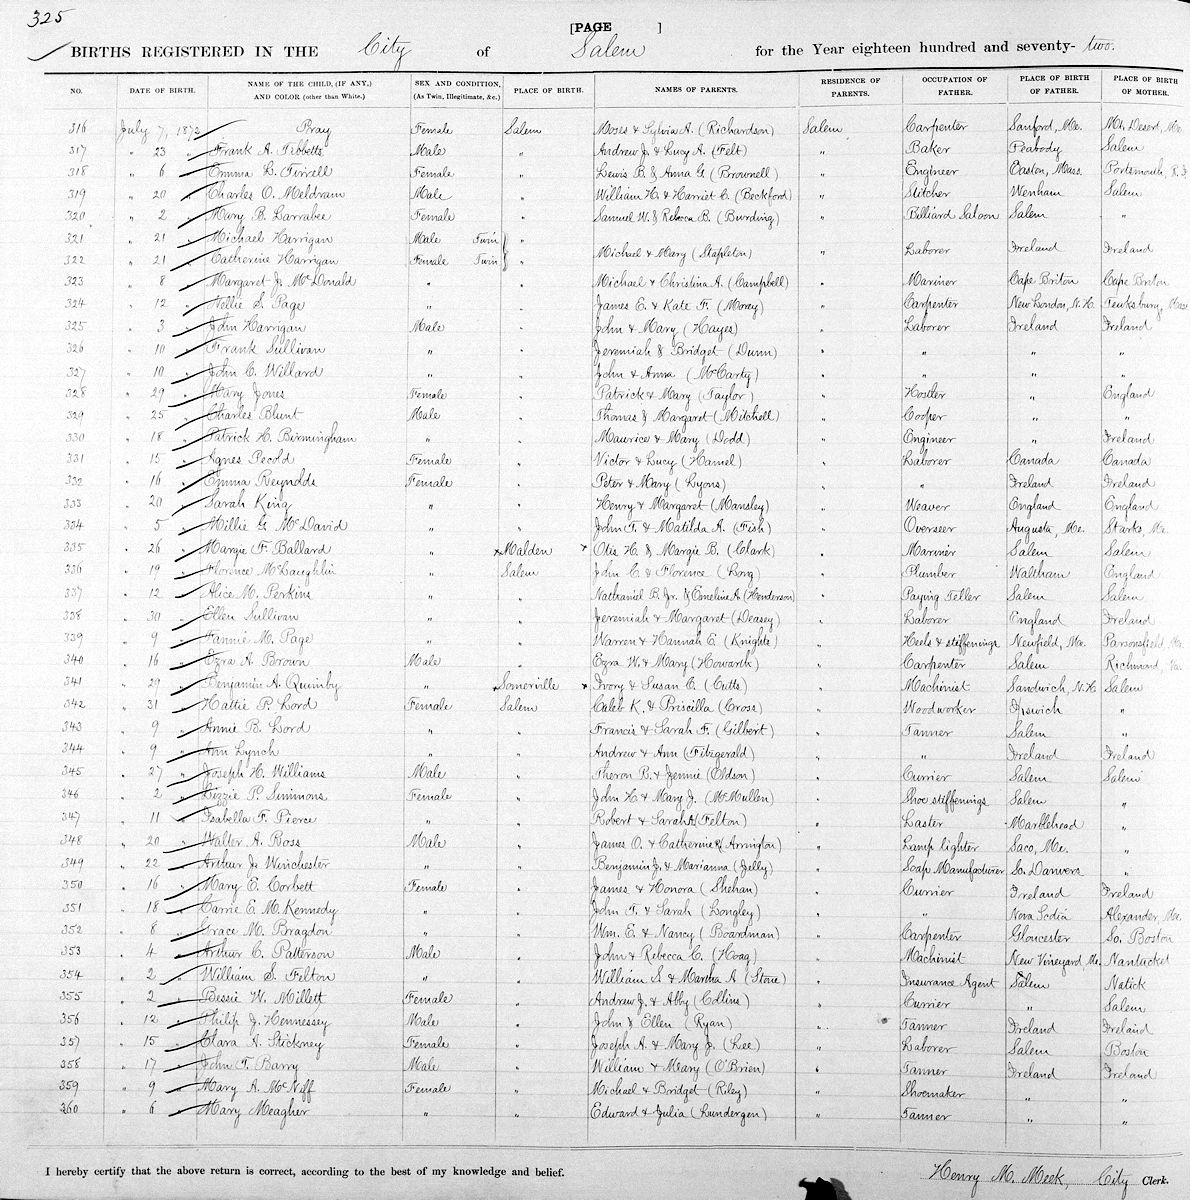 325
[PAGE ]
BIRTHS REGISTERED IN THE City of Salem for the Year eighteen hundred and seventy- two.
NO. DATE OF BIRTH. NAME OF THE CHILD, (IF ANY,) AND COLOR (other than White.) SEX AND CONDITION, (As Twin, Illegitimate, &c.) PLACE OF BIRTH. NAMES OF PARENTS. RESIDENCE OF PARENTS. OCCUPATION OF FATHER. PLACE OF BIRTH OF FATHER. PLACE OF BIRTH OF MOTHER.
316 July 7, 1872 Pray Female Salem Moses & Sylvia A. (Richardson) Salem Carpenter Sanford, Me. Mt. Desert, Me.
317 " 23 " Frank A. Tibbetts Male " Andrew J. & Lucy A. (Felt) " Baker Peabody Salem
318 " 6 " Emma L. Tirrell Female " Lewis B. & Anna G. (Brownell) " Engineer Easton, Mass. Portsmouth, R.I.
319 " 20 " Charles O. Meldram Male " William H. & Harriet C. (Beckford) " Stitcher Wenham Salem
320 " 2 " Mary B. Larrabee Female " Samuel W. & Rebecca B. (Burding) " Billiard Saloon Salem "
321 " 21 " Michael Harrigan Male Twin "
322 " 21 " Catherine Harrigan Female Twin " Michael & Mary (Stapleton) " Laborer Ireland Ireland
323 " 8 " Margaret J. McDonald " " Michael & Christina A. (Campbell) " Mariner Cape Briton Cape Breton
324 " 12 " Nellie S. Page " " James E. & Kate F. (Morey) " Carpenter New London, N.H. Tewksbury, Mass
325 " 3 " John Harrigan Male " John & Mary (Hayes) " Laborer Ireland Ireland
326 " 10 " Frank Sullivan " " Jeremiah & Bridget (Dunn) " " " "
327 " 10 " John C. Willard " " John & Anna (McCarty) " " " "
328 " 29 " Mary Jones Female " Patrick & Mary (Taylor) " Hostler " England
329 " 25 " Charles Blunt Male " Thomas & Margaret (Mitchell) " Cooper " "
330 " 18 " Patrick H. Birmingham " " Maurice & Mary (Dodd) " Engineer " Ireland
331 " 15 " Agnes Pecold Female " Victor & Lucy (Hamel) " Laborer Canada Canada
332 " 16 " Emma Reynolds Female " Peter & Mary (Lyons) " " Ireland Ireland
333 " 20 " Sarah King " " Henry & Margaret (Mansley) " Weaver England England
334 " 5 " Millie G. McDavid " " John T. & Matilda A. (Fish) " Overseer Augusta, Me. Starks, Me.
335 " 26 " Margie F. Ballard " x Malden x Otis H. & Margie B. (Clark) " Mariner Salem Salem
336 " 19 " Florence McLaughlin " Salem John C. & Florence (Long) " Plumber Waltham England
337 " 12 " Alice M. Perkins " " Nathaniel B. Jr. & Emeline A. (Henderson) " Paying Teller Salem Salem
338 " 30 " Ellen Sullivan " " Jeremiah & Margaret (Deasey) " Laborer England Ireland
339 " 9 " Fannie M. Page " " Warren & Hannah E. (Knights) " Heels & stiffenings Newfield, Me. Parsonsfield, Me.
340 " 16 " Ezra A. Brown Male " Ezra W. & Mary (Howarth) " Carpenter Salem Richmond, Va.
341 " 29 " Benjamin A. Quimby " x Somerville x Ivory & Susan C. (Cutts) " Machinist Sandwich, N.H. Salem
342 " 31 " Hattie P. Lord Female Salem Caleb K. & Priscilla (Cross) " Woodworker Ipswich "
343 " 9 " Annie B. Lord " " Francis & Sarah F. (Gilbert) " Tanner Salem "
344 " 9 " Ann Lynch " " Andrew & Ann (Fitzgerald) " " Ireland Ireland
345 " 27 " Joseph H. Williams Male " Theron B. & Jennie (Oldson) " Currier Salem Salem
346 " 2 " Lizzie P. Simmons Female " John H. & Mary J. (McMullen) " Shoe stiffenings Salem "
347 " 11 " Isabella F. Pierce " " Robert & Sarah A. (Felton) " Laster Marblehead "
348 " 20 " Walter A. Ross Male " James O. & Catherine (Arrington) " Lamp lighter Saco, Me. "
349 " 22 " Arthur J. Winchester " " Benjamin J. & Marianna (Jelly) " Soap Manufacturer So. Danvers "
350 " 16 " Mary E. Corbett Female " James & Honora (Shehan) " Currier Ireland Ireland
351 " 18 " Carrie E. M. Kennedy " " John T. & Sarah (Longley) " " Nova Scotia Alexander, Me.
352 " 8 " Grace M. Bragdon " " Wm. E. & Nancy (Boardman) " Carpenter Gloucester So. Boston
353 " 4 " Arthur C. Patterson Male " John & Rebecca C. (Hoag) " Machinist New Vineyard, Me. Nantucket
354 " 2 " William S. Felton " " William S. & Martha A. (Stone) " Insurance Agent Salem Natick
355 " 2 " Bessie W. Millett Female " Andrew J. & Abby (Collins) " Currier " Salem
356 " 12 " Philip J. Hennessey Male " John & Ellen (Ryan) " Tanner Ireland Ireland
357 " 15 " Clara A. Stickney Female " Joseph A. & Mary J. (Lee) " Laborer Salem Boston
358 " 17 " John T. Barry Male " William & Mary (O'Brien) " Tanner Ireland Ireland
359 " 9 " Mary A. McNiff Female " Michael & Bridget (Riley) " Shoemaker " "
360 " 6 " Mary Meagher " " Edward & Julia (Lundergen) " Tanner " "
I hereby certify that the above return is correct, according to the best of my knowledge and belief.
Henry M. Meek, City Clerk.